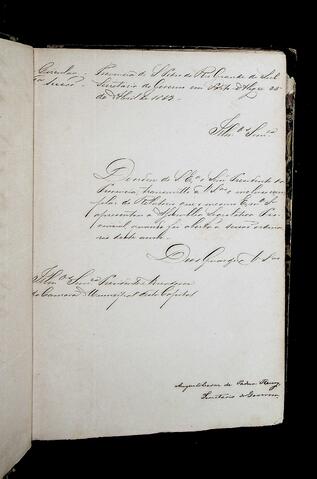 Circular
Provincia de S. Pedro do Rio Grande do Sul
Secretaria do Governo em Porto Alegre 25
de Abril de 1863.
Illmo. Snr.
De ordem de S. Exª o Snr. Presidente da
Provincia, transmitto a V. Sª o incluso exem-
plar do Relatorio que o mesmo Exmo. Sr.
apresentou á Assemblea Legislativa Pro-
vincial quando foi aberta a sessão ordina-
ria deste anno.
Deos Guarde a V. Sª
Illmo. Snr. Presidente e Vereadores
da Camara Municipal desta Capital
de Padua Fleury
Secretario do Governo